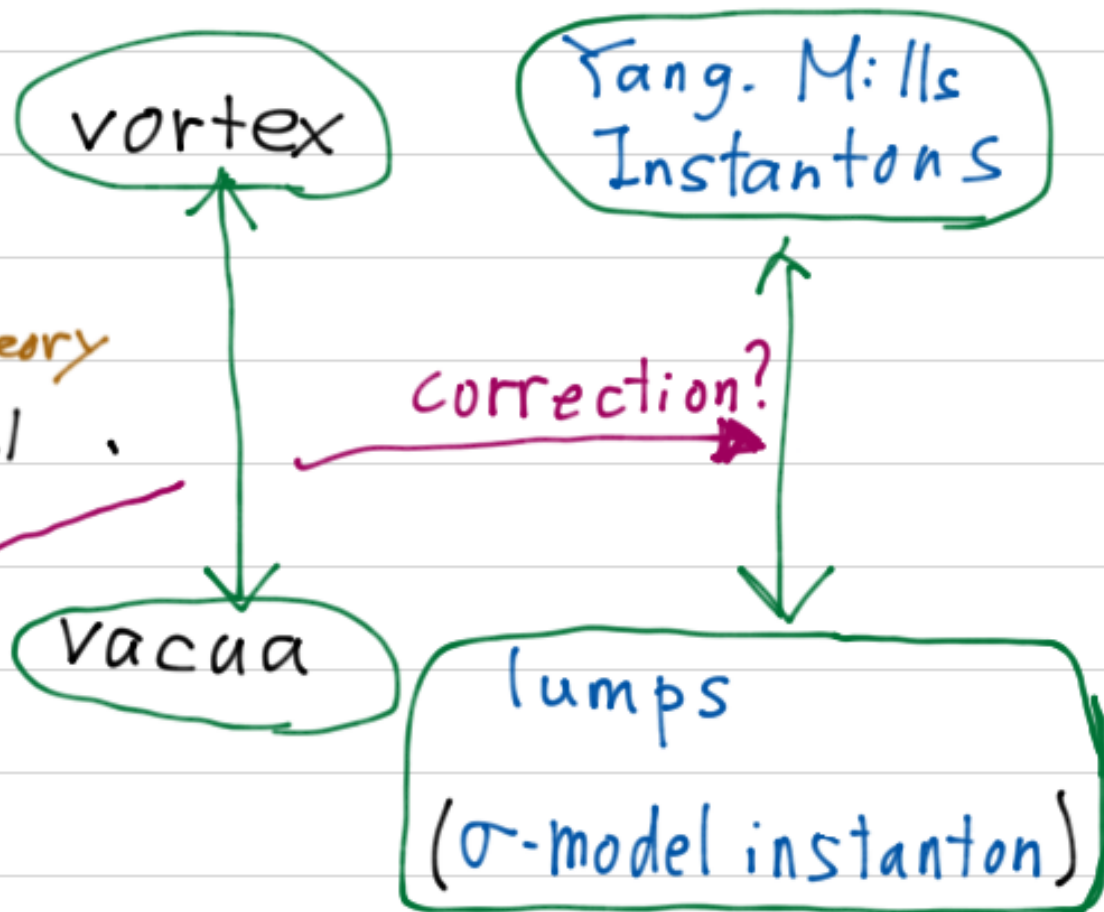 vortex
Yang. Mills
Instantons
eory
correction?
vacua
lumps
(σ-model instanton)